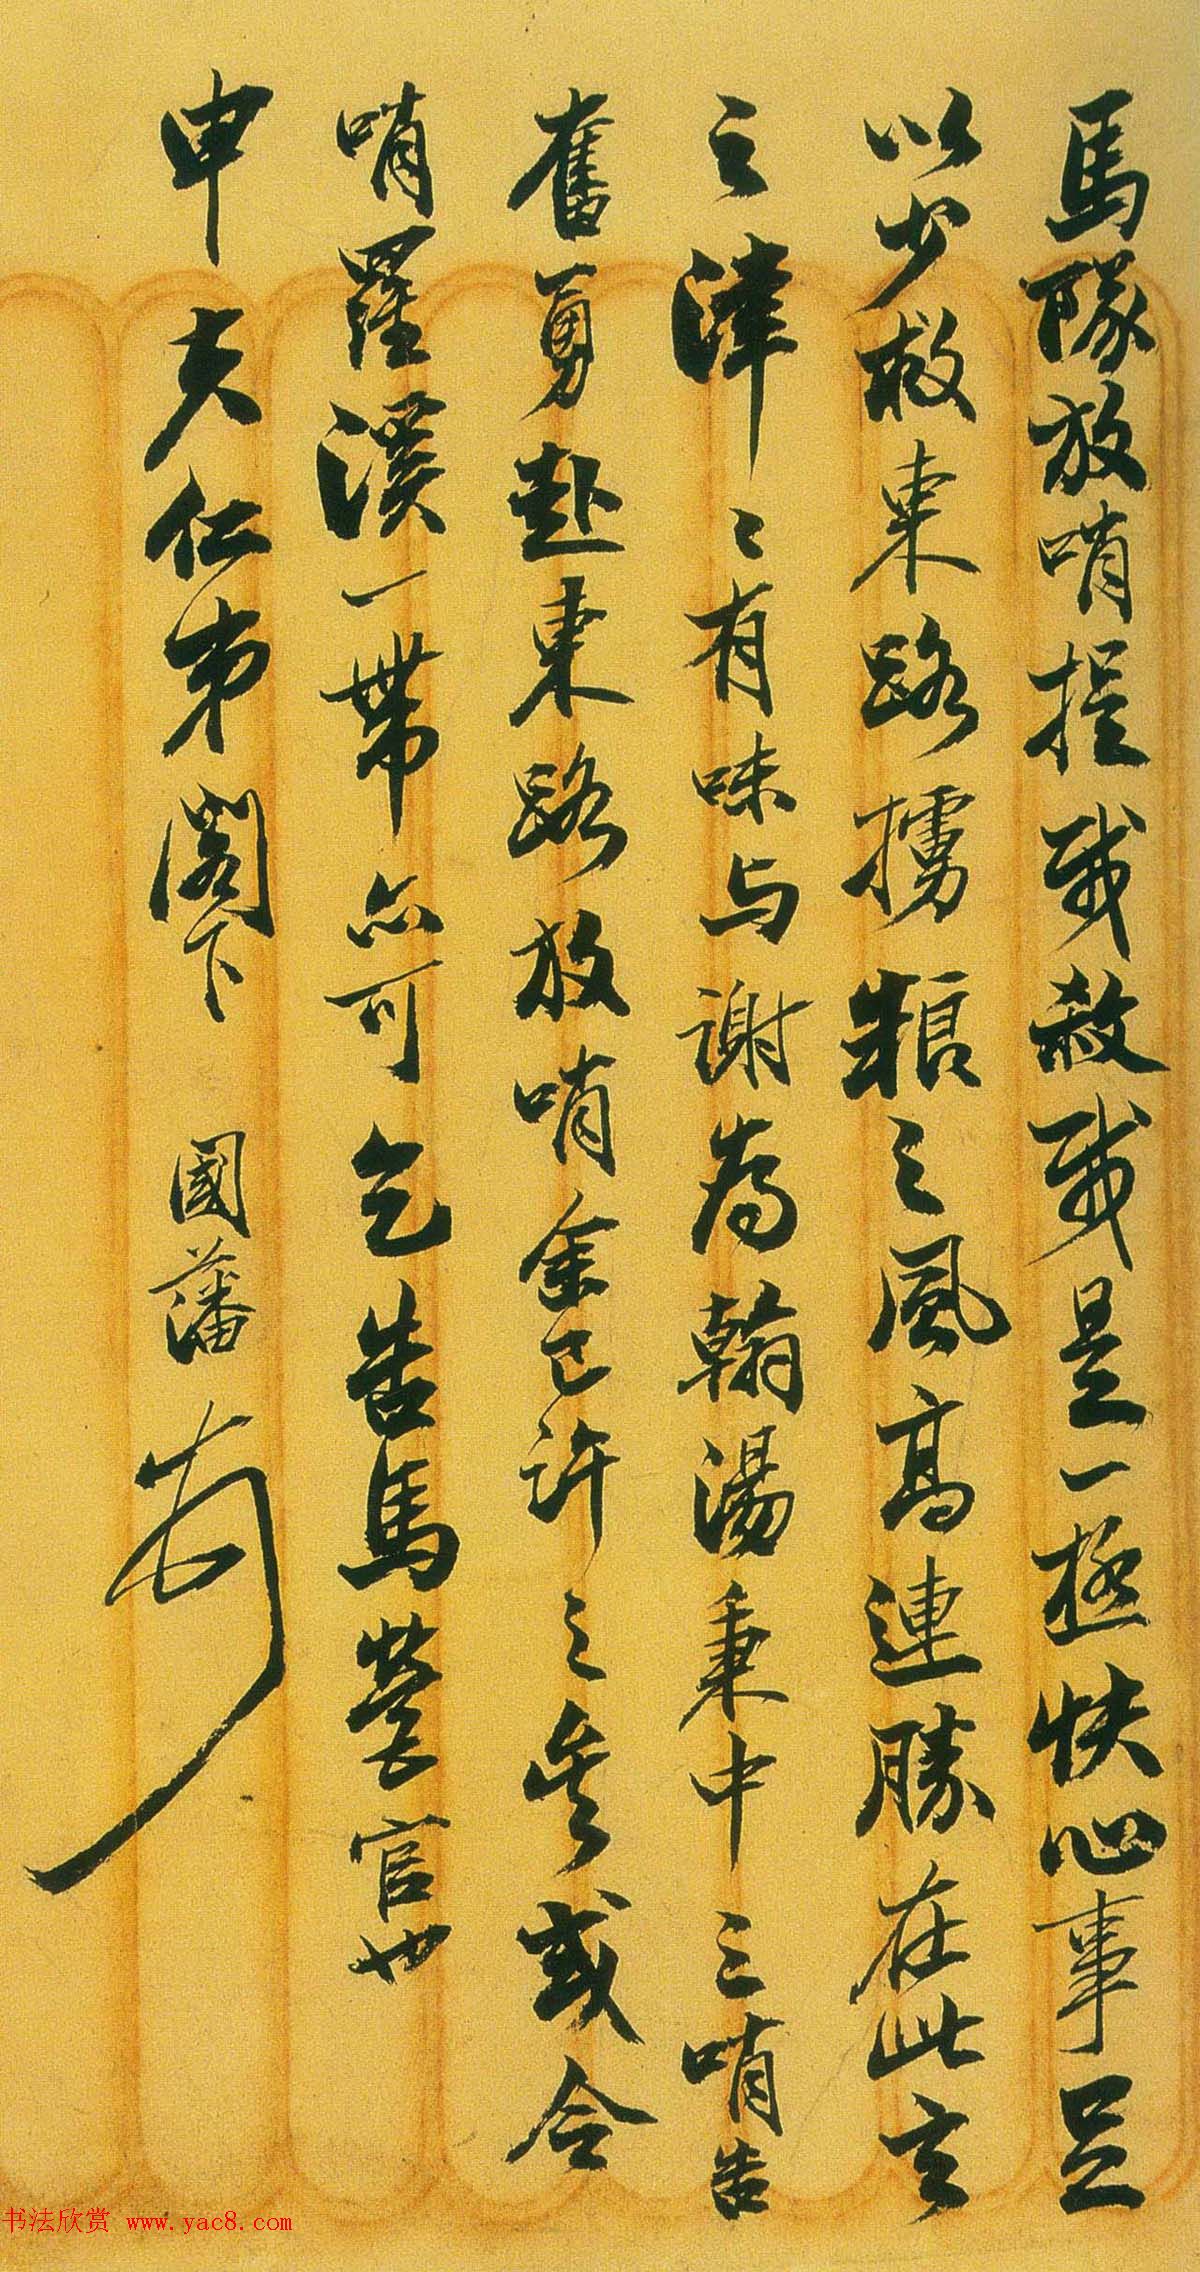 馬隊放哨捉賊殺賊是一極快心事足
以少救東路擄糧之風高連勝在此言
之津〻有味与謝為翰湯秉中三哨告
奮勇赴東路放哨余已許之矣或令
哨羅溪一帶亦可乞告馬營官也
申夫仁弟閣下 國藩
书法欣赏 www.yac8.com